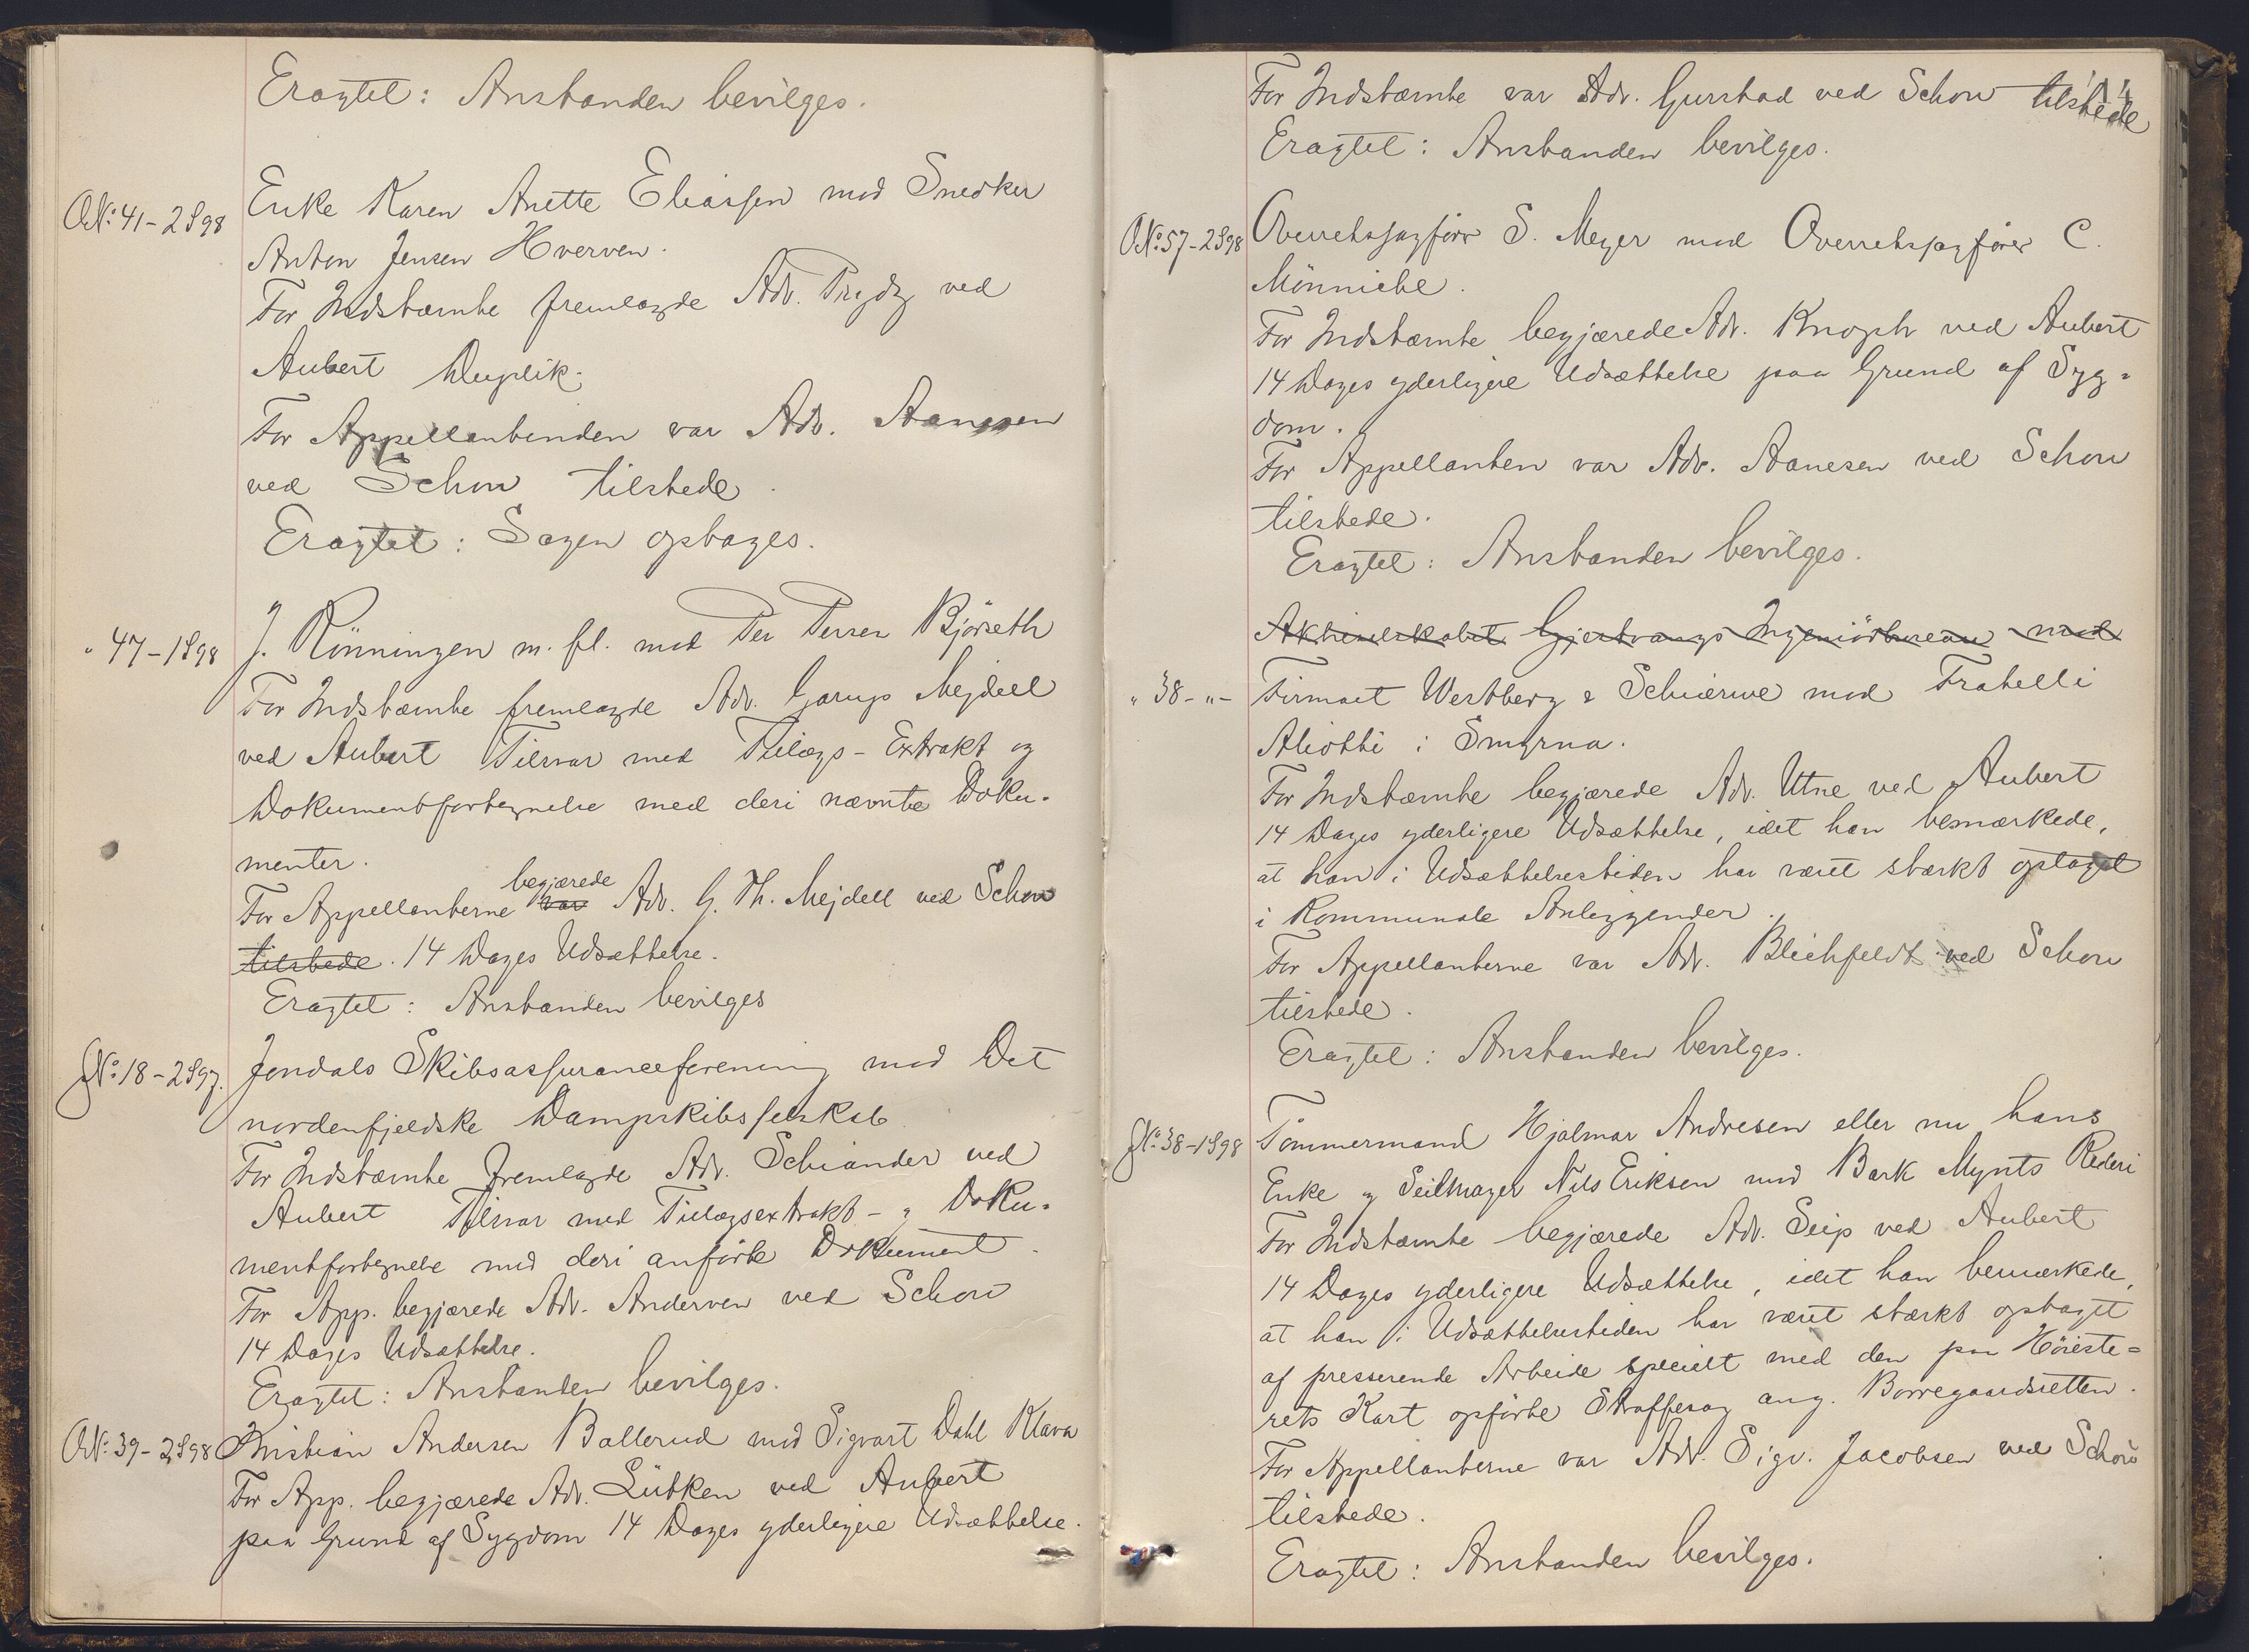 Eragtet: Anstanden bevilges.
O.N: 41-2S98
Enke Karen Anette Eliassen mod Snedker
Anton Jensen Hverven.
For Indstævnte fremlagde Adv. Prydz ved
Aubert Duplik.
For Appellantinden var Adv. Aanesen
ved Schou tilstede.
Eragtet: Sagen optages.
" 47-1S98
J. Rönningen m. fl. mod Per Persen Björseth
For Indstævnte fremlagde Adv. Garup Mejdell
ved Aubert Tilsvar med Tillægs-Extrakt og
Dokumentfortegnelse med deri nævnte Doku-
menter.
begjærede
For Appellanterne var Adv. G. Th. Mejdell ved Schou
tilstede. 14 Dages Udsættelse.
Eragtet: Anstanden bevilges
J№: 18-2S97.
Jondals Skibsassuranceforening mod Det
nordenfjeldske Dampskibsselskab
For Indstævnte fremlagde Adv. Schiander ved
Aubert Tilsvar med Tillægsextrakt- og Doku-
mentfortegnelse med deri anförte Dokument.
For App. begjærede Adv. Anderssen ved Schou
14 Dages Udsættelse.
Eragtet: Anstanden bevilges.
O.N: 39-2S98
Kristian Andersen Ballerud mod Sigvart Dahl Klava
For App. begjærede Adv. Lütken ved Aubert
paa Grund af Sygdom 14 Dages yderligere Udsættelse.
114
For Indstævnte var Adv. Gurstad ved Schou tilstede
Eragtet: Anstanden bevilges.
O.№: 57-2S98
Overretssagförer S. Meyer mod Overretssagförer C.
Mönniche.
For Indstævnte begjærede Adv. Knoph ved Aubert
14 Dages yderligere Udsættelse paa Grund af Syg-
dom.
For Appellanten var Adv. Aanesen ved Schou
tilstede.
Eragtet: Anstanden bevilges.
Aktieselskabet Gjertvangs Ingeniörbureau mod
" 38-"-
Firmaet Westberg & Schierwe mod Fratelli
Aliotti i Smyrna.
For Indstævnte begjærede Adv. Utne ved Aubert
14 Dages yderligere Udsættelse, idet han bemærkede,
at han i Udsættelsestiden har været stærkt optaget
i Kommunale Anliggender.
For Appellanterne var Adv. Blichfeldt ved Schou
tilstede.
Eragtet: Anstanden bevilges.
J№: 38-1S98
Tömmermand Hjalmar Andresen eller nu hans
Enke og Seilmager Nils Eriksen mod Bark Mynts Rederi
For Indstævnte begjærede Adv. Seip ved Aubert
14 Dages yderligere Udsættelse, idet han bemærkede,
at han i Udsættelsestiden har været stærkt optaget
af presserende Arbeide specielt med den paa Höieste-
rets Kart opförte Straffesag ang. Borregaardsretten.
For Appellanterne var Adv. Sigv. Jacobsen ved Schou
tilstede.
Eragtet: Anstanden bevilges.